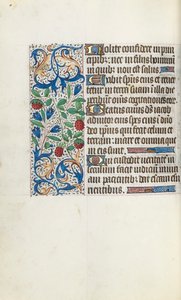 Nolite confidere in prin
cipibus: nec in filiis hominum
in quibus non est salus.
Exibit spus eius et rever
tetur in terram suam: in illa die
peribunt omnes cogitationes eorum.
Beatus cuius deus iacob
adiutor eius spes eius in dño
deo ipsius qui fecit celum et
terram: mare et omnia que
in eis sunt.
Qui custodit veritatem in
seculum facit iudicium iniuri
am pacientibus: dat escam esu
rientibus.